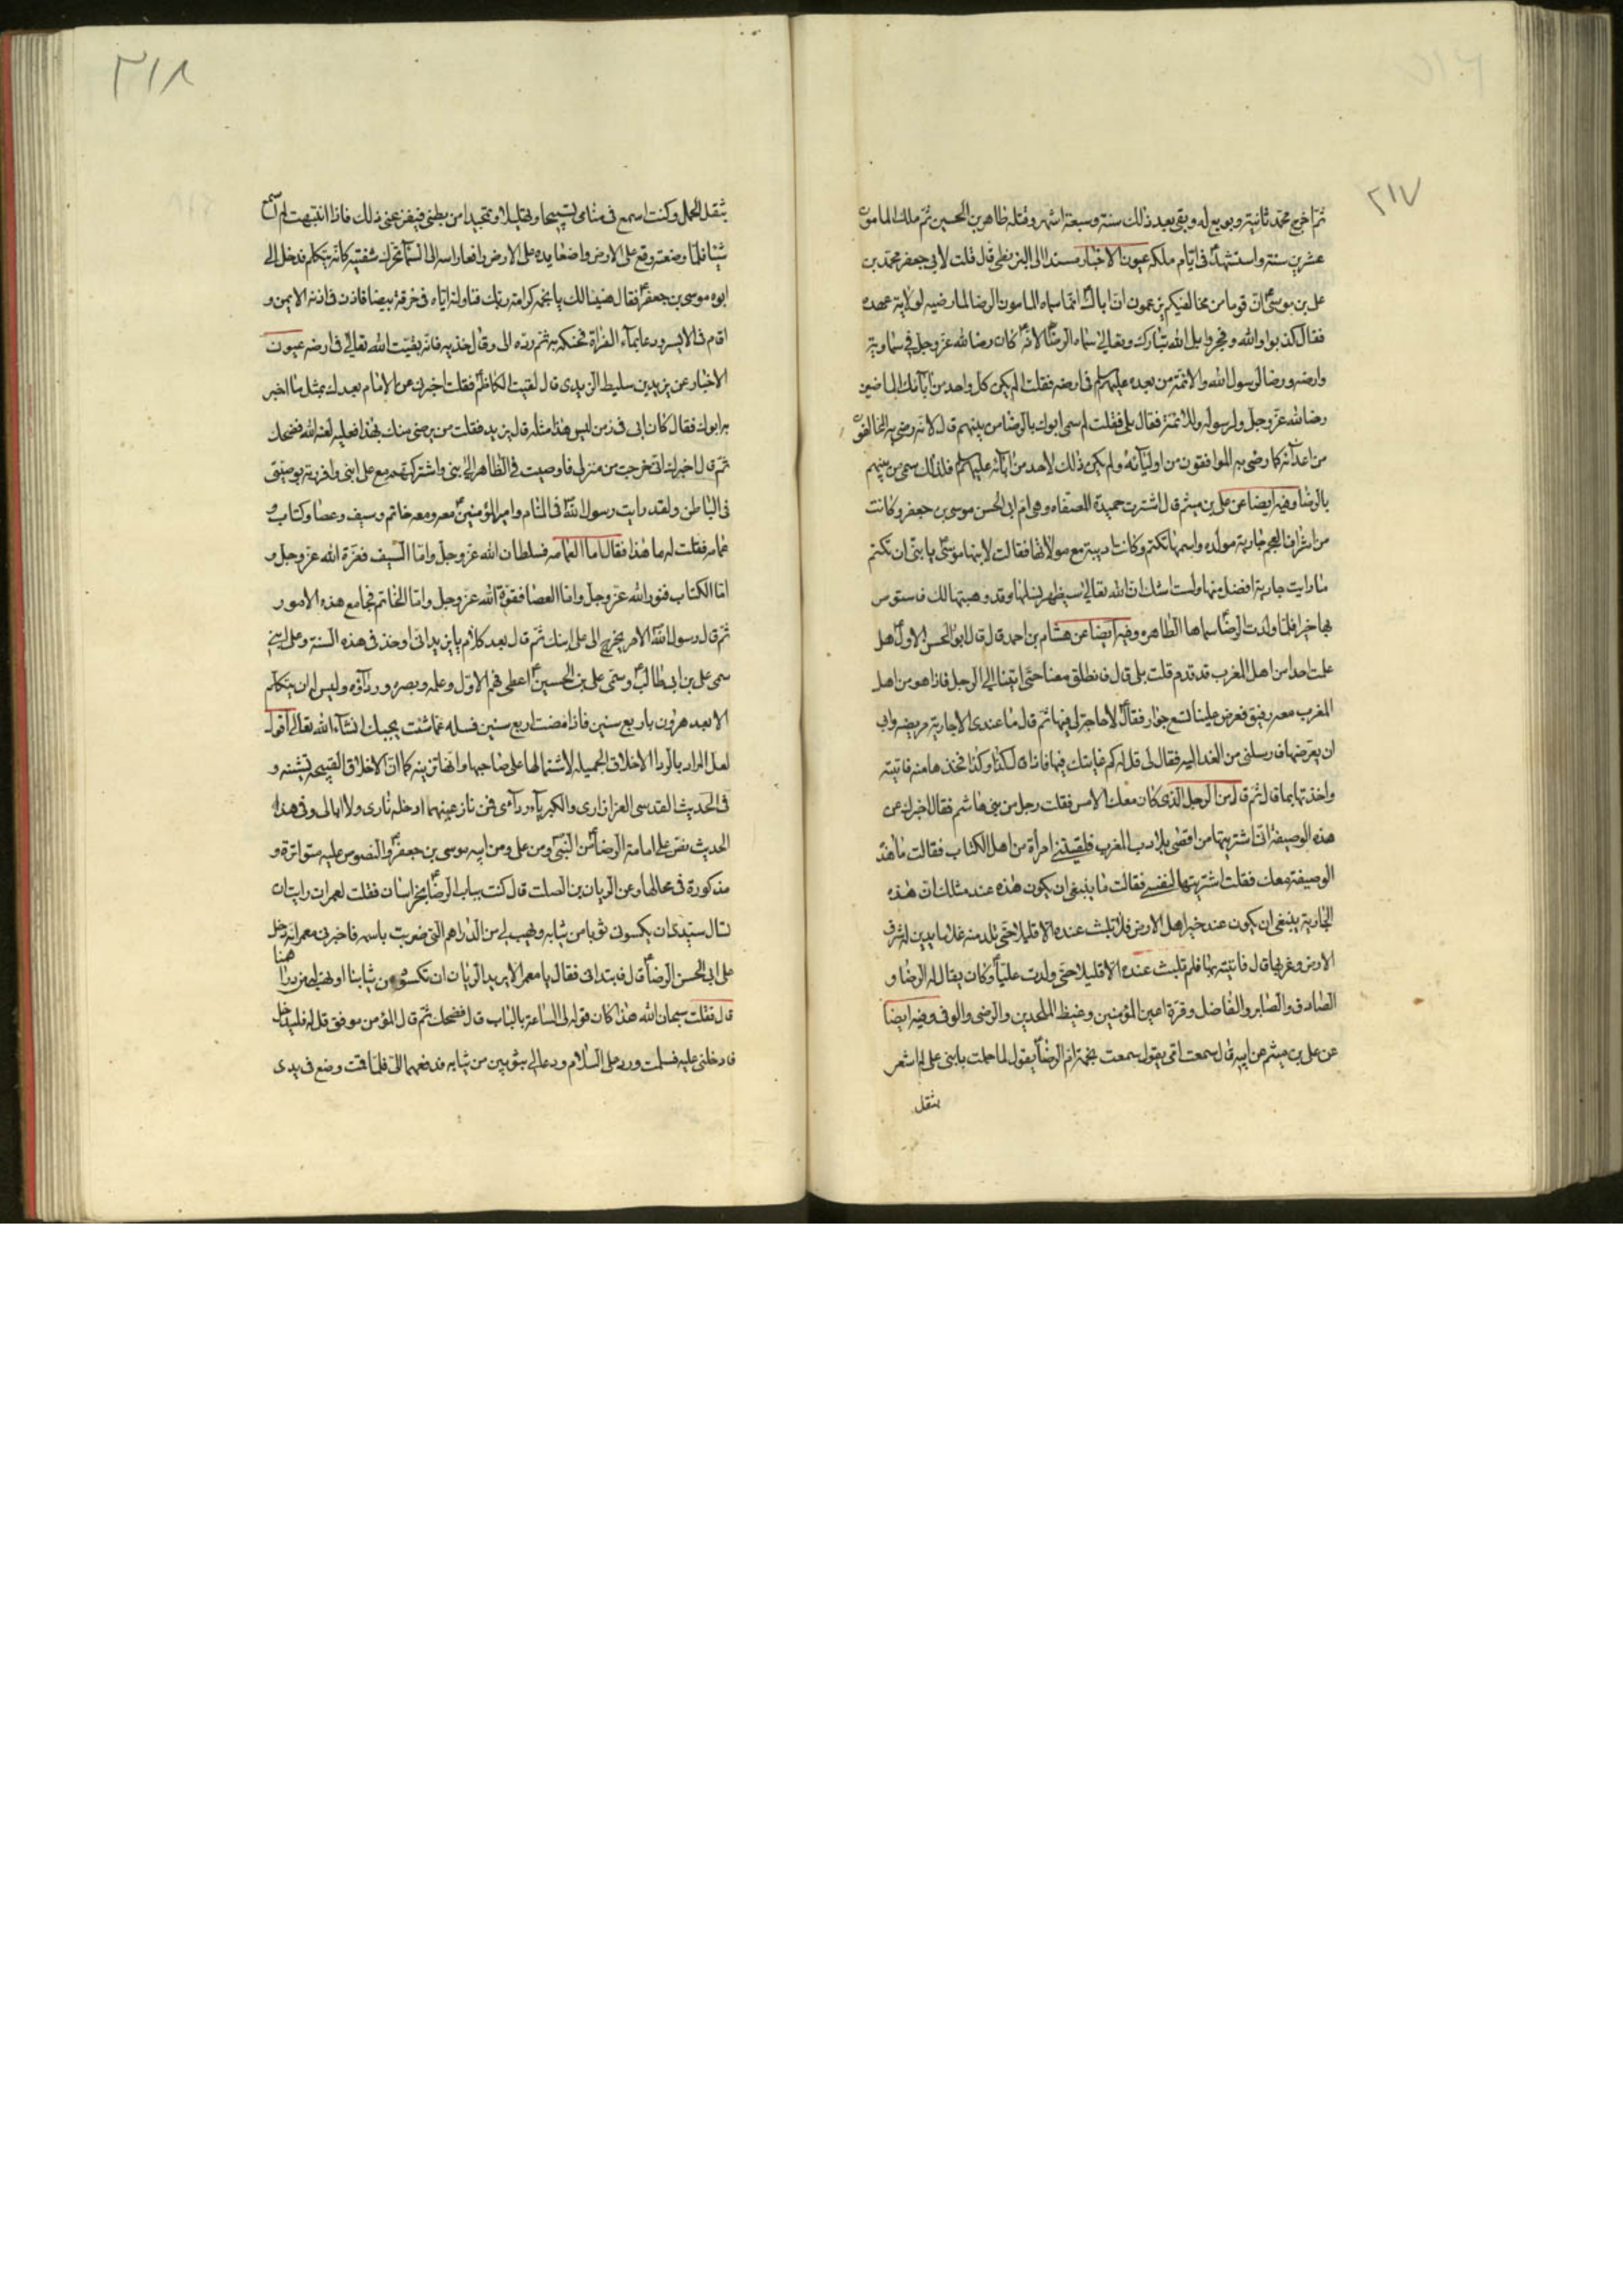 ٢١٧
ثم اخرج محمد ثانية وبويع له وبقى بعد ذلك سنة وسبعة اشهر وقتله طاهر بن الحسين ثم ملك المامون
عشرين سنة واستشهد ع فى ايام ملكه عيون الاخبار مسندا الى البزنطى قال قلت لابى جعفر محمد بن
على بن موسى ع ان قوما من مخالفيكم يزعمون ان اباك انما سماه المامون الرضا لما رضيه لولاية عهده
فقال كذبوا والله وفجروا بل الله تبارك وتعالى سماه الرضا لانه كان رضا لله عز وجل فى سماويته
وارضه ورضا لرسول الله والائمة من بعده عليهم السلم فى ارضه فقلت الم يكن كل واحد من آبائك الماضين
رضا لله عز وجل ولرسوله وللائمة فقال بلى فقلت لم سمى ابوك بالرضا من بينهم قال لانه رضى به المخالفون
من اعدائه كما رضى به الموافقون من اوليائه ولم يكن ذلك لاحد من آبائه عليهم السلم فلذلك سمى من بينهم
بالرضا وفيه ايضا عن على بن ميثم قال اشترت حميدة المصفاه وهى ام ابى الحسن موسى بن جعفر وكانت
من اشراف العجم جارية مولده واسمها تكتم وكانت اديبة مع مولاتها فقالت لابنها موسى ع يا بنى ان تكتم
ما رايت جارية افضل منها ولست اشك ان الله تعالى سيظهر نسلها وقد وهبتها لك فاستوص
بها خيرا فلما ولدت الرضا سماها الطاهره وفيه ايضا عن هشام بن احمد قال قال ابو الحسن الاول ع هل
علمت احدا من اهل المغرب قد قدم قلت بلى قال فانطلق معنا حتى اتينا الى الرجل فاذا هو من اهل
المغرب معه رفيق فعرض علينا تسع جوار فقال ع لا حاجة لى فيها ثم قال ما عندى الا جارية مريضه وابى
ان يعرضها فارسلنى من الغد اليه فقال لى قل له كم غايتك فيها فاذا قال لك كذا وكذا فخذها منه فاتيته
واخذتها بما قال ثم قال من الرجل الذى كان معك الامس فقلت رجل من بنى هاشم فقال اخبرك عن
هذه الوصيفة انى اشتريتها من اقصى بلاد المغرب فلقيتنى امرأة من اهل الكتاب فقالت ما هذه
الوصيفة معك فقلت اشتريتها لنفسى فقالت ما ينبغى ان يكون هذه عند مثلك ان هذه
الجارية ينبغى ان يكون عند خير اهل الارض فلا تلبث عنده الا قليلا حتى تلد منه غلاما يدين له شرق
الارض وغربها قال فاتيته بها فلم تلبث عنده الا قليلا حتى ولدت عليا ع وكان يقال له الرضا و
الصادق والصابر والفاضل وقرة اعين المؤمنين وغيظ الملحدين والرضى والوفى وفيه ايضا
عن على بن ميثم عن ابيه قال سمعت امى يقول سمعت نجمة ام الرضا ع يقول لما حملت بابنى على لم اشعر
بثقل
٢١٨
بثقل الحمل وكنت اسمع فى منامى تسبيحا وتهليلا وتمجيدا من بطنى فيفزعنى ذلك فاذا انتبهت لم اسمع
شيئا فلما وضعته وقع على الارض واضعا يده على الارض رافعا راسه الى السماء تحرك شفتيه كانه يتكلم فدخل الى
ابوه موسى بن جعفر ع فقال هنيئا لك يا نجمه كرامة ربك فناولته اياه فى خرقة بيضا فاذن فى اذنه الايمن و
اقام فى الايسر ودعا بماء الفراة فحنكه به ثم رده الى وقال خذيه فانه بقيت الله تعالى فى ارضه عيون
الاخبار عن يزيد بن سليط الزيدى قال لقيت الكاظم ع فقلت اخبرنى عن الامام بعدك بمثل ما اخبر
به ابوك فقال كان ابى فى زمن ليس هذا مثله قال يزيد فقلت من يرضى منك بهذا فعليه لعنة الله فضحك
ثم قال اخبرك انى خرجت من منزلى فاوصيت فى الظاهر الى بنى واشركتهم مع على ابنى وافردته بوصيتى
فى الباطن ولقد رايت رسول الله فى المنام وامير المؤمنين ع معه ومعه خاتم وسيف وعصا وكتاب و
عمامه فقلت له ما هذا فقال اما العمامه فسلطان الله عز وجل واما السيف فعزة الله عز وجل و
اما الكتاب فنور الله عز وجل واما العصا فقوة الله عز وجل واما الخاتم فجامع هذه الامور
ثم قال رسول الله الامر يخرج الى على ابنك ثم قال بعد كلام يا يزيد انى اوخذ فى هذه السنة وعلى ابنى
سمى على بن ابى طالب ع وسمى على بن الحسين ع اعطى فهم الاول وعلمه وبصره ورداؤه وليس له ان يتكلم
الا بعد هرون باربع سنين فاذا مضت اربع سنين فسله عما شئت يجيبك انشاء الله تعالى اقول
لعل المراد بالردا الاخلاق الجميله لاشتمالها على صاحبها وانها تزينه كما ان الاخلاق القبيحه تشينه و
فى الحديث القدسى العز ازارى والكبرياء ردآئى فمن نازعنيهما ادخله نارى ولا ابالى وفى هذا
الحديث نص على امامة الرضا ع من النبى ومن على ومن ابيه موسى بن جعفر ع والنصوص عليه متواترة و
مذكورة فى محالها وعن الريان بن الصلت قال كنت بباب الرضا ع بخراسان فقلت لمعمر ان رايت ان
تسال سيدى ان يكسونى ثوبا من ثيابه ويهب لى من الدراهم التى ضربت باسمه فاخبرنى معمر انه دخل
على ابى الحسن الرضا ع قال فابتدانى فقال يا معمر الا يريد الريان ان نكسوه من ثيابنا او نهب له من دراهمنا
قال فقلت سبحان الله هذا كان قوله لى الساعة بالباب قال فضحك ثم قال المؤمن موفق قل له فليدخل
فادخلنى عليه فسلمت ورد على السلام ودعا لى بثوبين من ثيابه فدفعهما الى فلما قمت وضع فى يدى